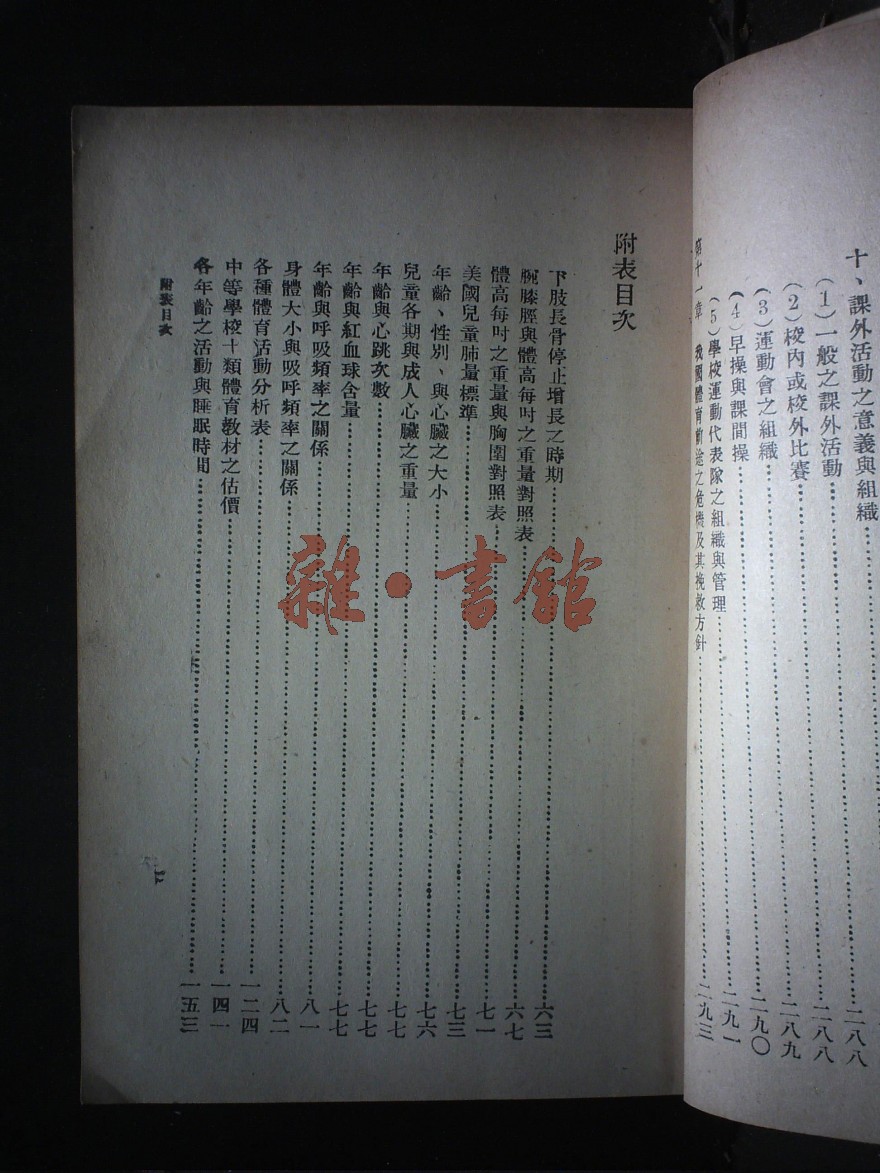 十、課外活動之意義與組織……二八八
（1）一般之課外活動……二八八
（2）校內或校外比賽……二八九
（3）運動會之組織……二九〇
（4）早操與課間操……二九一
（5）學校運動代表隊之組織與管理
第十一章 我國體育前途之危機及其挽救方針……二九三
附表目次
下肢長骨停止增長之時期……六三
腕膝脛與體高每吋之重量對照表……六七
體高每吋之重量與胸圍對照表……七一
美國兒童肺量標準……七三
年齡、性別、與心臟之大小……七六
兒童各期與成人心臟之重量……七七
年齡與心跳次數……七七
年齡與紅血球含量……七七
年齡與呼吸頻率之關係……八一
身體大小與吸呼頻率之關係……八二
各種體育活動分析表……一二四
中等學校十類體育教材之估價……一四一
各年齡之活動與睡眠時間……一五三
附表目次
雜·書館